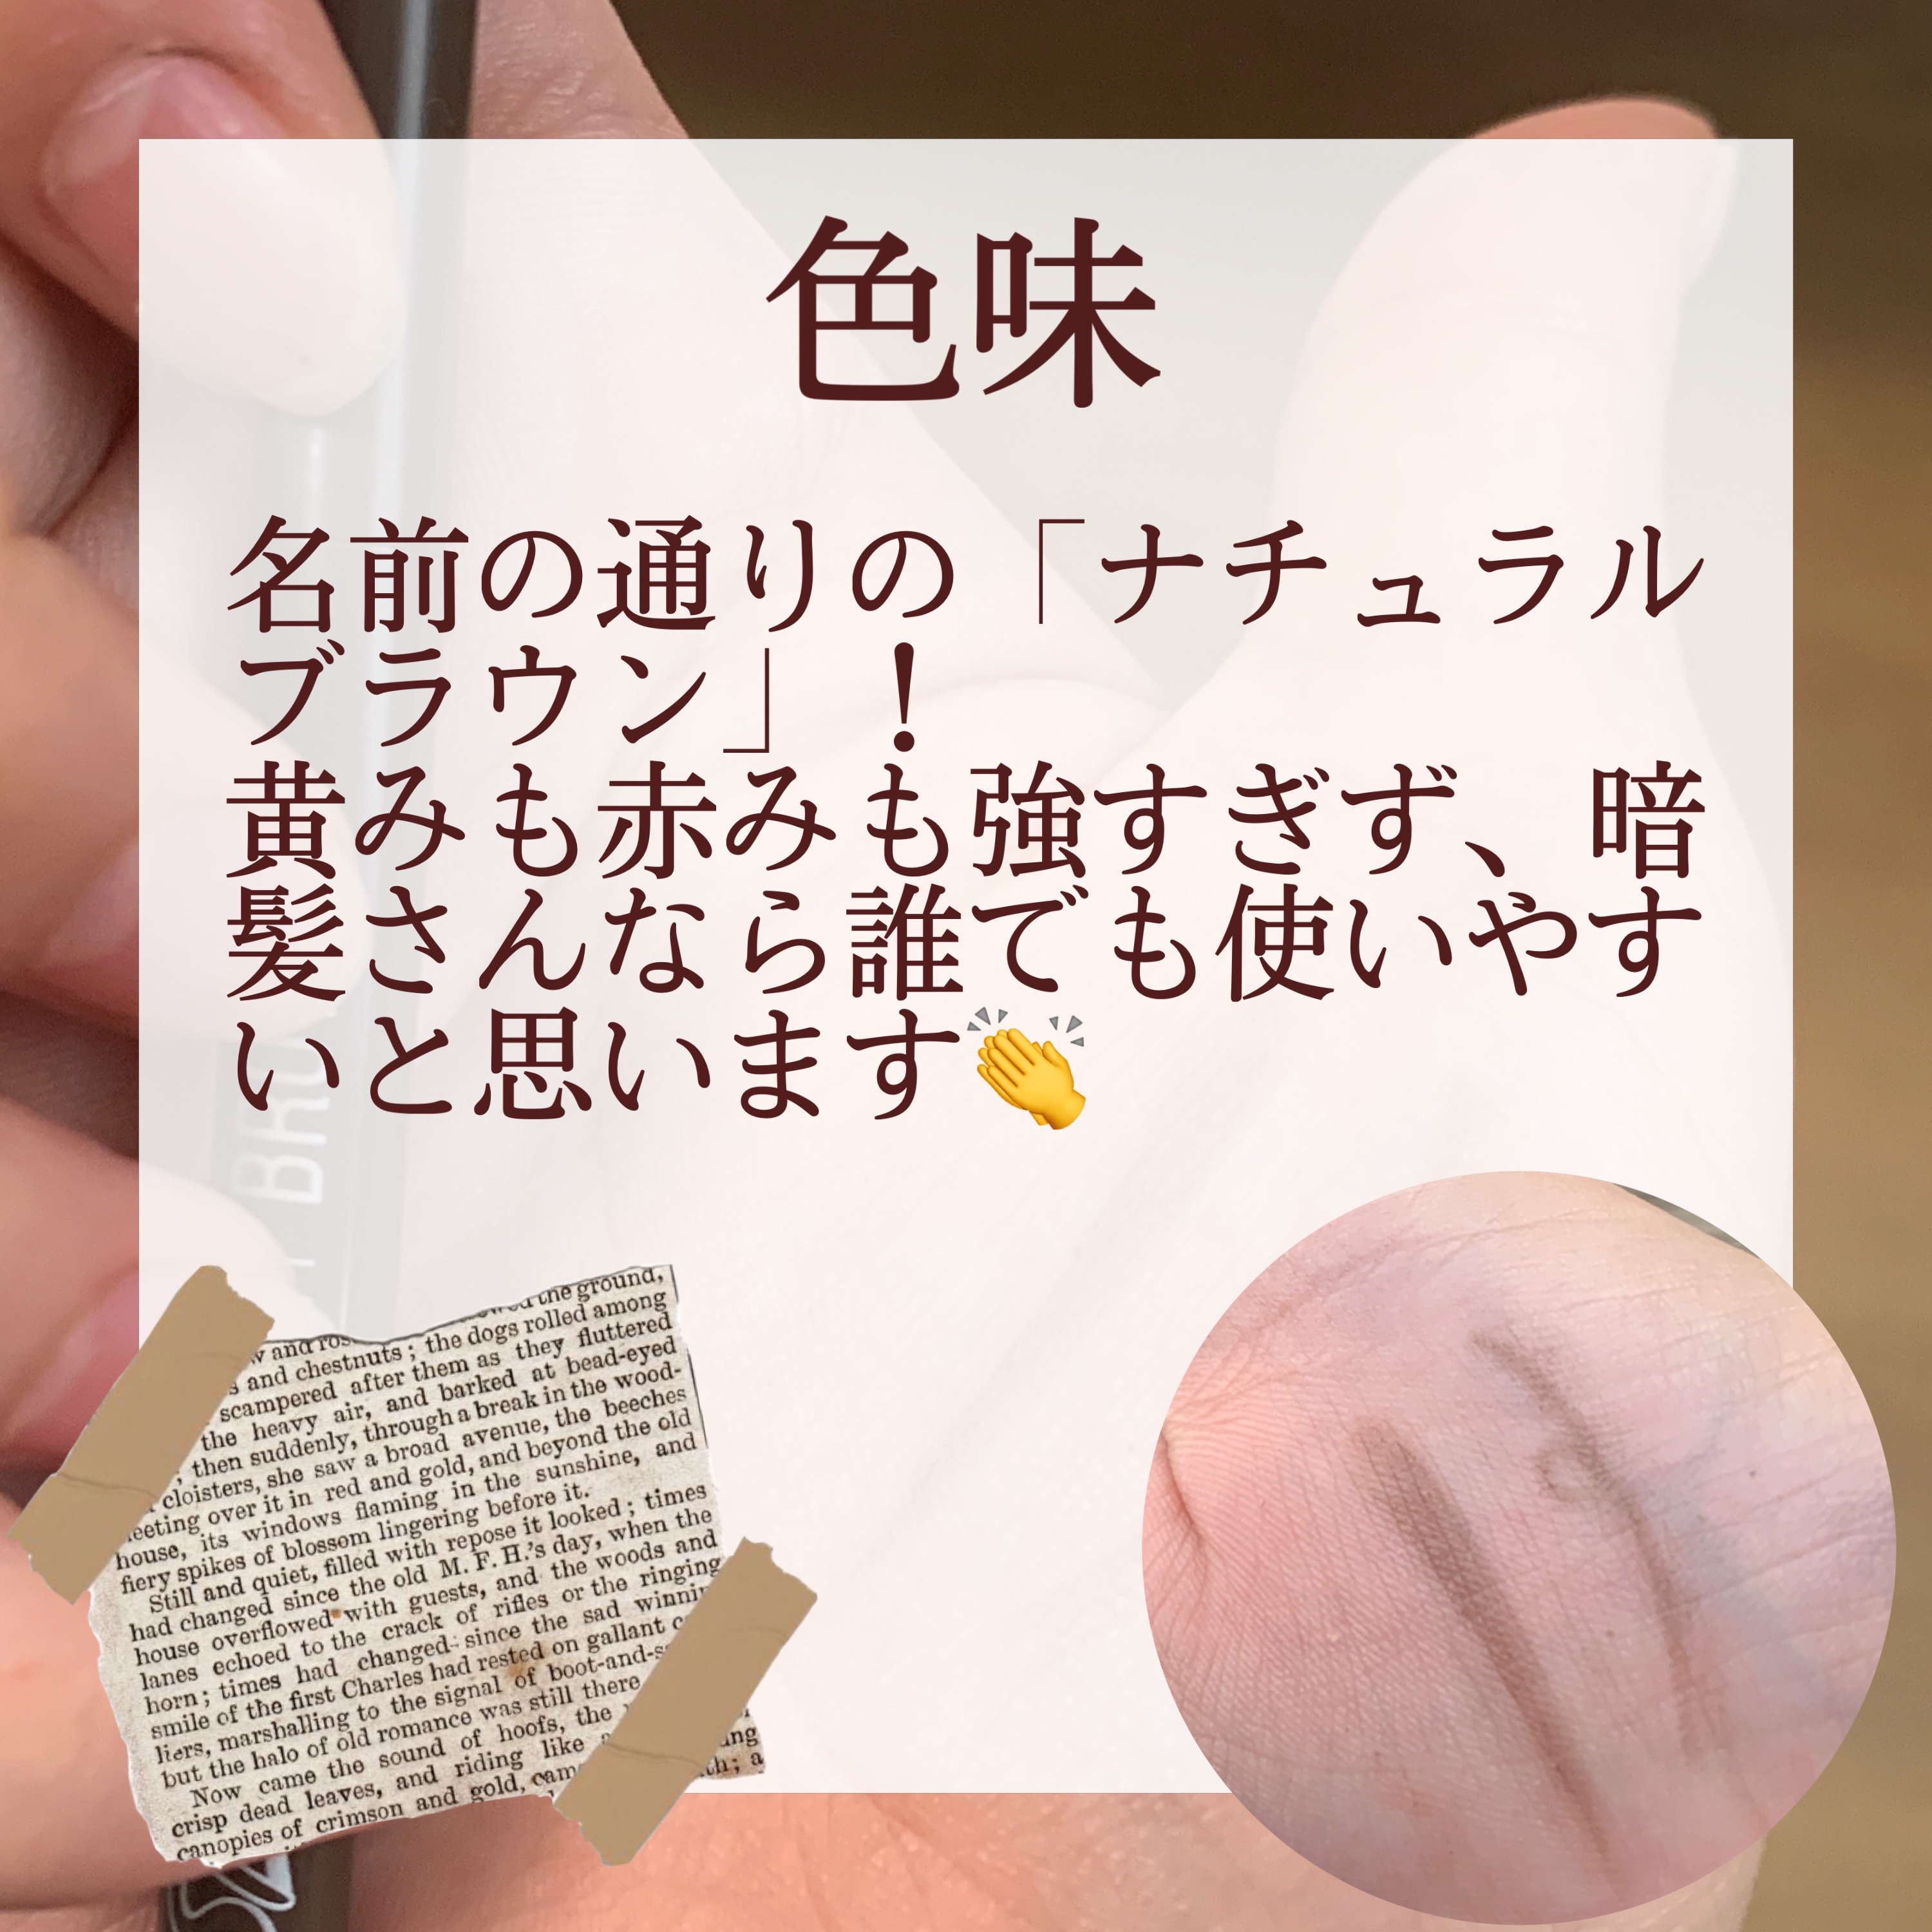 色味
名前の通りの「ナチュラル
ブラウン」！
黄みも赤みも強すぎず、暗
髪さんなら誰でも使いやす
いと思います👏
BRO
the ground,
and chestnuts; the dogs rolled among
scampered after them as they fluttered
the heavy air, and barked at bead-eyed
then suddenly, through a break in the wood-
cloisters, she saw a broad avenue, the beeches
meeting over it in red and gold, and beyond the old
house, its windows flaming in the sunshine, and
fiery spikes of blossom lingering before it.
Still and quiet, filled with repose it looked; times
had changed since the old M. F. H.'s day, when the
house overflowed with guests, and the woods and
lanes echoed to the crack of rifles or the ringing
horn; times had changed since the sad winnin
smile of the first Charles had rested on gallant c
liers, marshalling to the signal of boot-and-s
but the halo of old romance was still there
Now came the sound of hoofs, the
crisp dead leaves, and riding like
canopies of crimson and gold, came